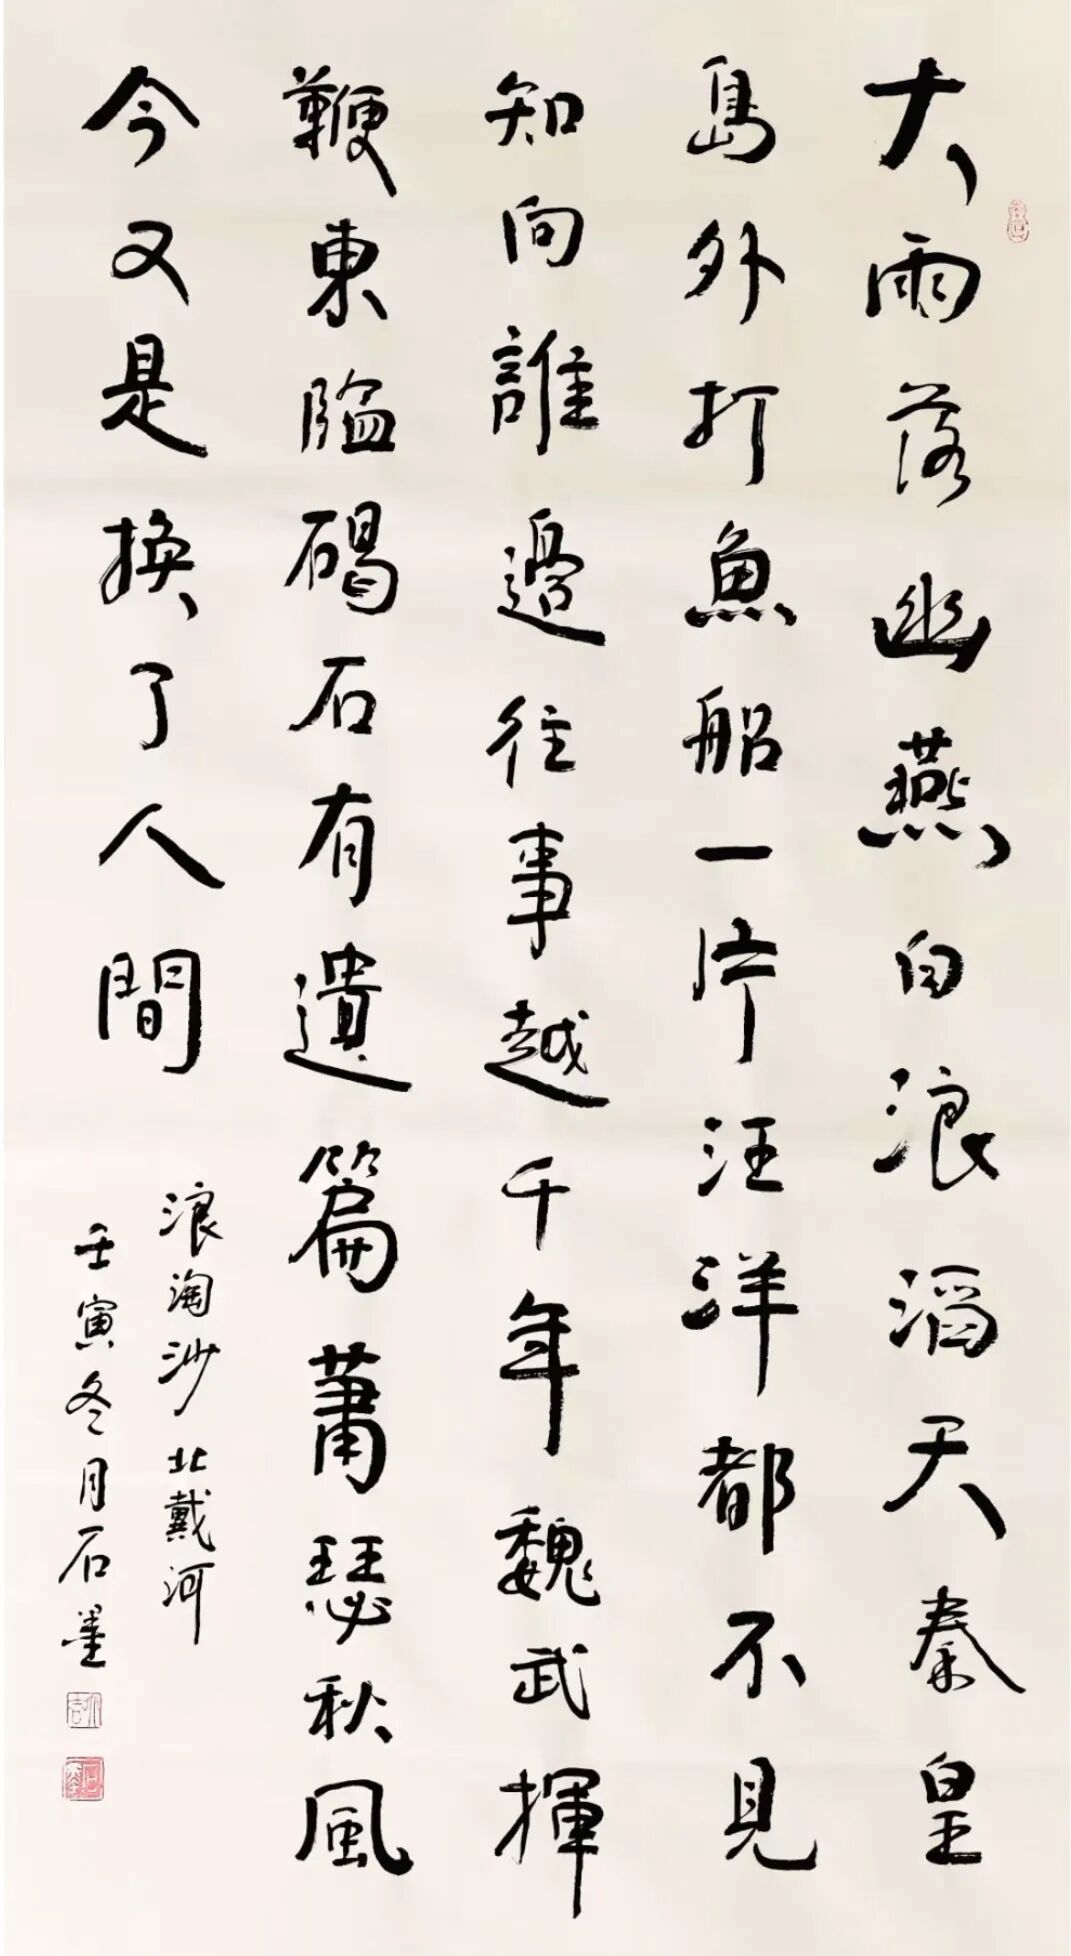 大雨落幽燕白浪滔天秦皇
島外打魚船一片汪洋都不見
知向誰邊往事越千年魏武揮
鞭東臨碣石有遺篇蕭瑟秋風
今又是換了人間
浪淘沙北戴河
壬寅冬月石墨